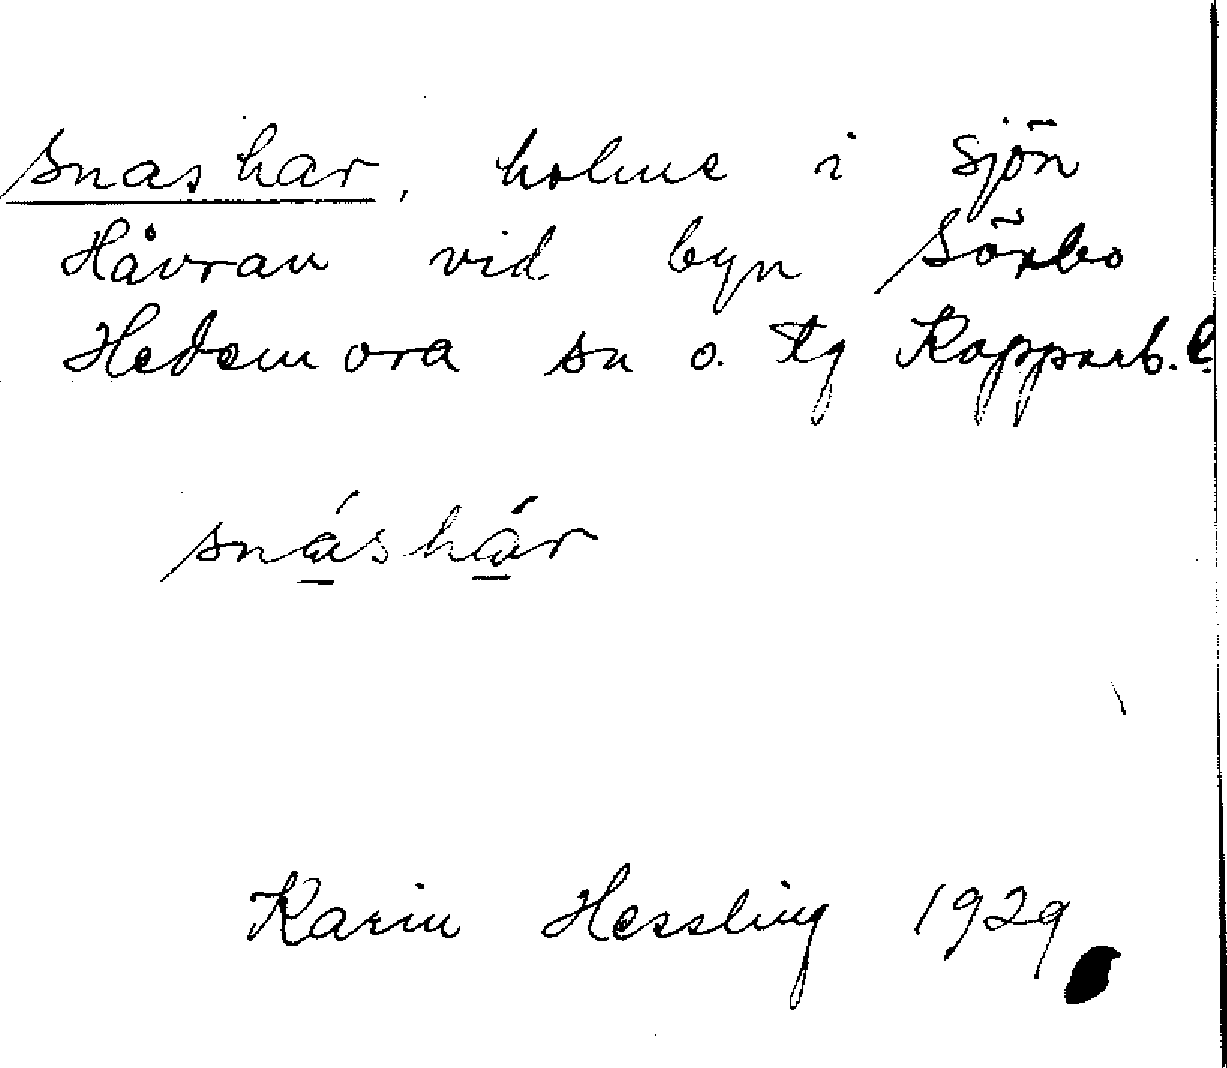 Snashar, holme i sjön
Håvran vid byn Sörbo
Hedemora sn o. tg Kopparb. l.
snás hár
Karin Hessling 1929